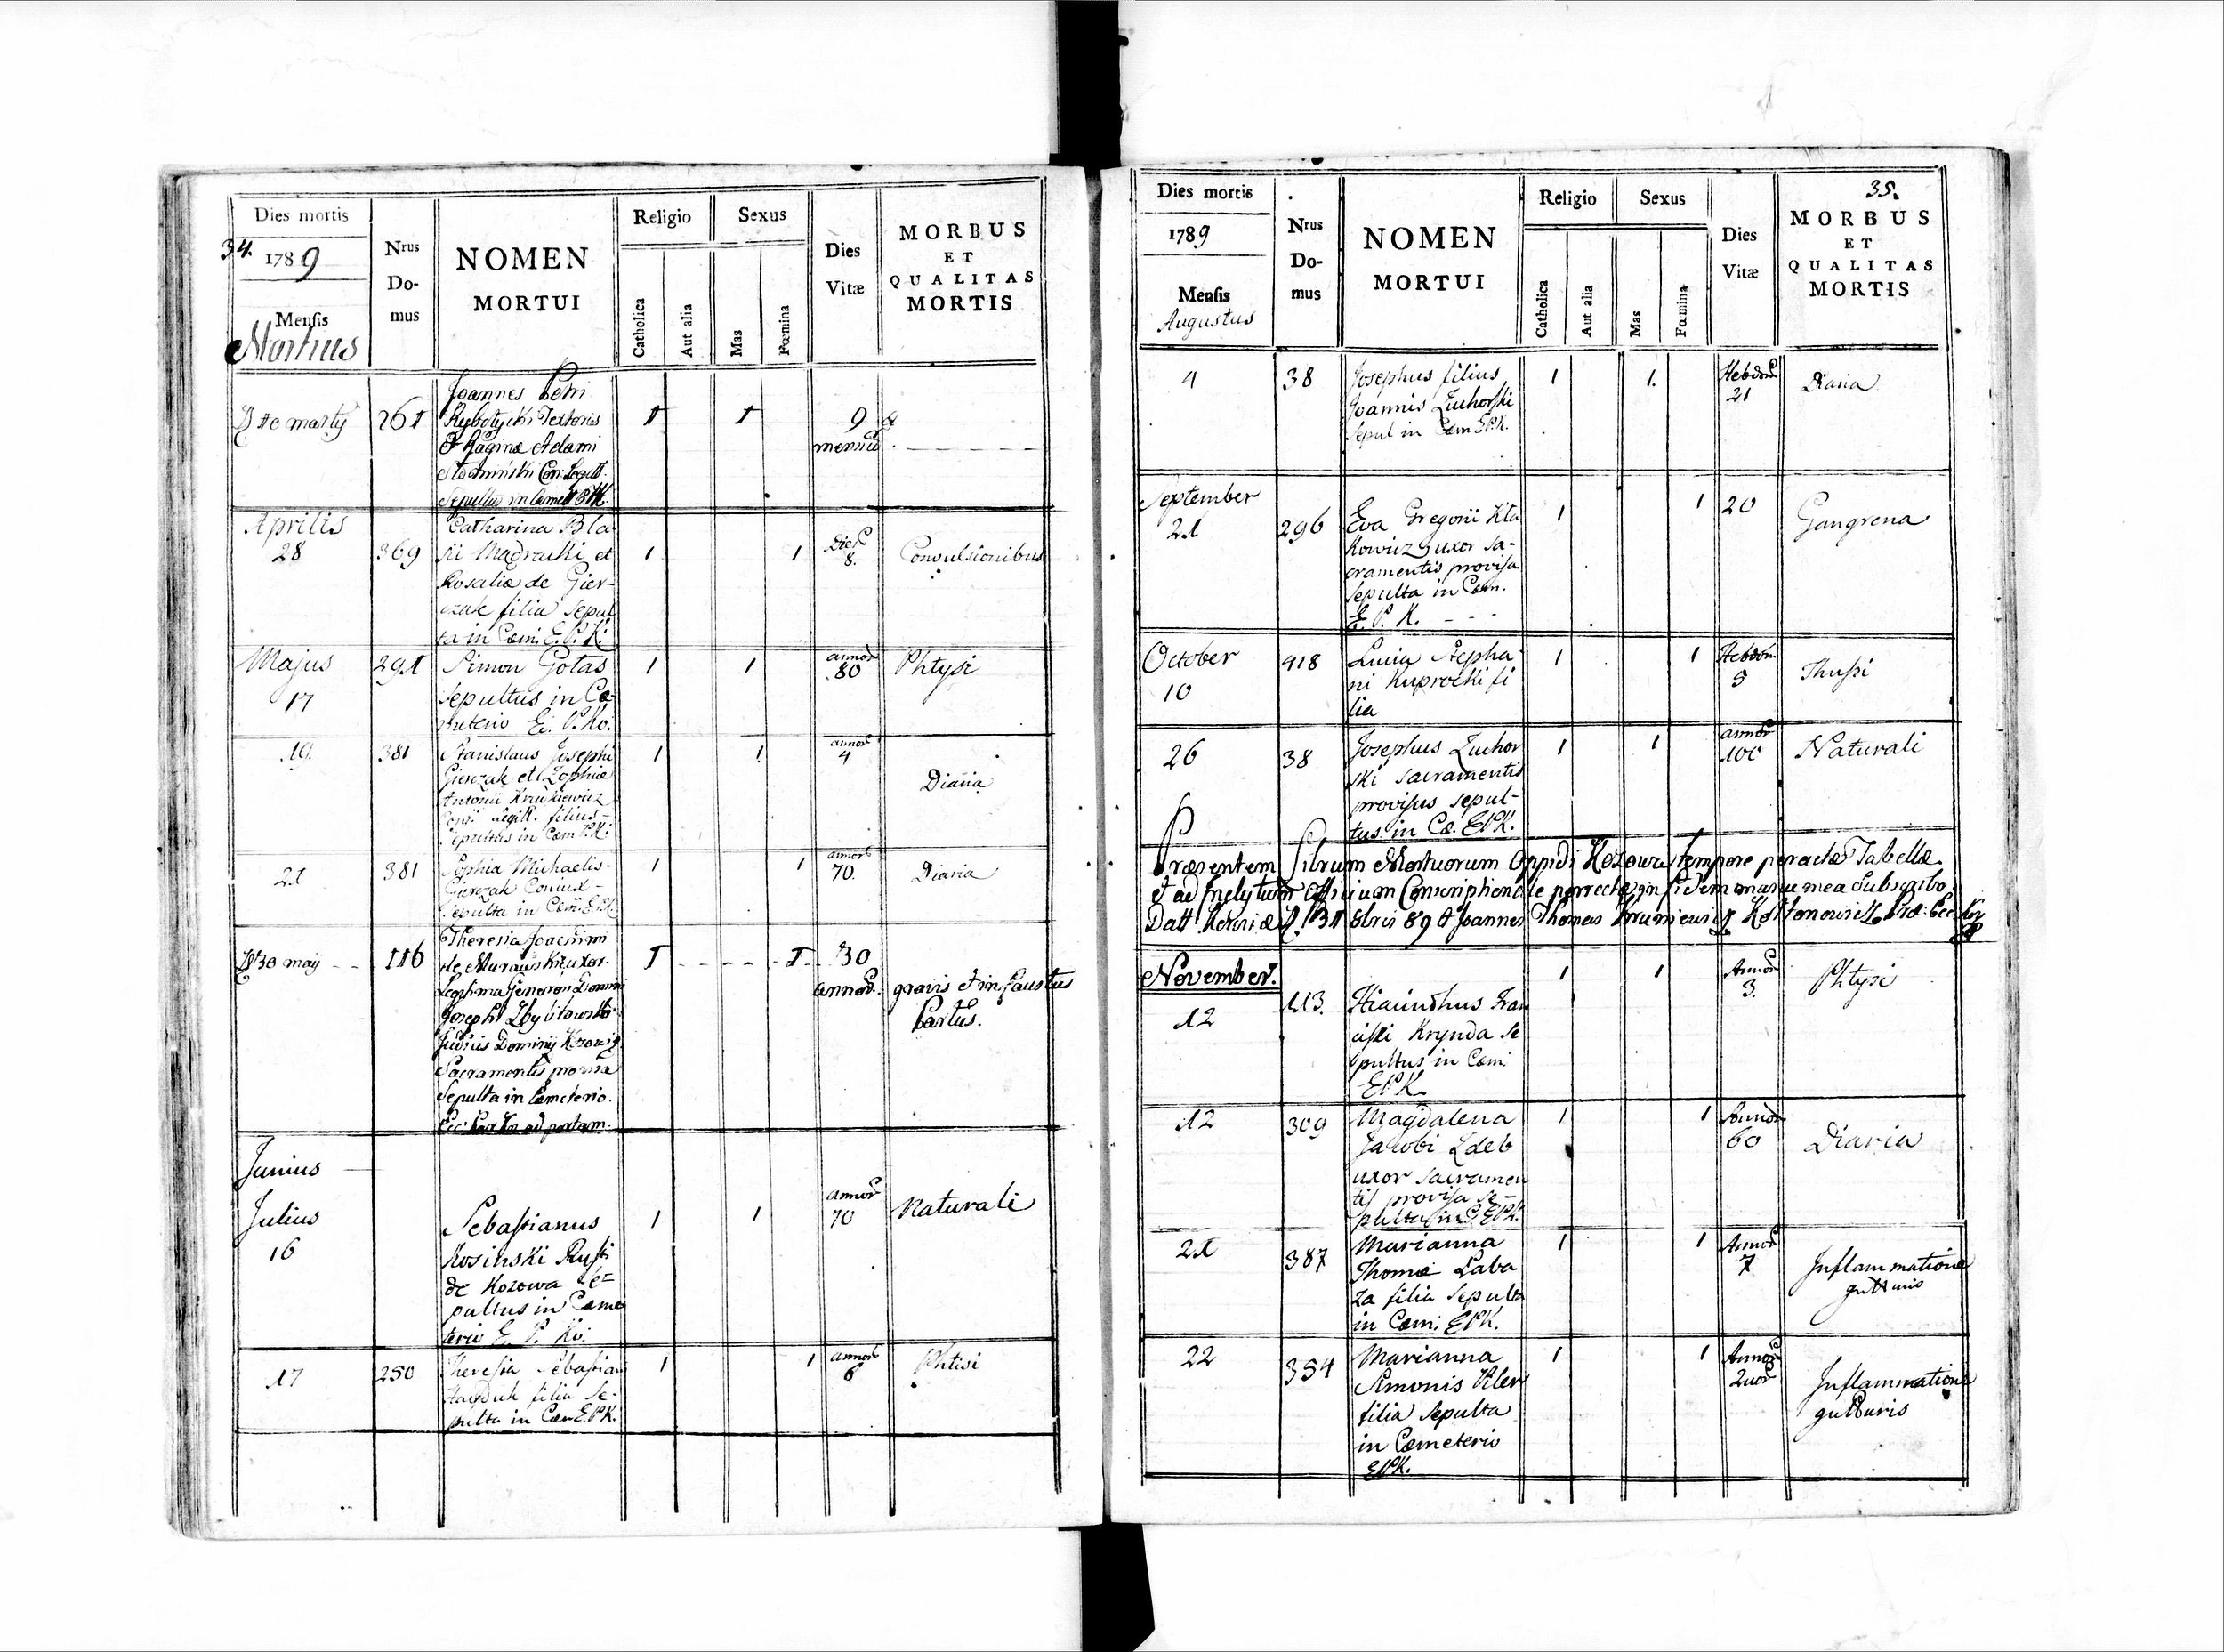 34.
Dies mortis
1789
Mensis
Martius
Nrus
Do-
mus
NOMEN
MORTUI
Religio
Catholica
Aut alia
Sexus
Mas
Fœmina
Dies
Vitæ
MORBUS
ET
QUALITAS
MORTIS
261
Joannes Petri
Textoris
Adami
1
1
9
mensiū
Aprilis
28
369
Catharina Bla
sii Mądracki et
Rosaliæ de Gier-
czak filia sepul
ta in Cœm. E. P. K.
1
1
Dierū
8.
Convulsionibus
Majus
17
291
Simon Gołas
sepultus in Cœ-
E. P. Ko.
1
1
annorū
80
Phtysi
19.
381
Stanislaus Josephi
Gierczak et Zophiæ
Antonii Krukiewicz
filius
Sepultus in Cœm P. K.
1
1
annorū
4
Diaria
21
381
Sophia Michaelis-
Gierczak Coniux-
Sepulta in Cœm. E.P.K.
1
1
annorū
70.
Diaria
30 maij
116
Theresia Joachimi
uxor
Legitima Generosi Domini
Josephi
Judicis Dominij
Sacramentis provisa
Sepulta in Cæmeterio.
ad portam.
1
1
30
annorū.
gravis et infaustus
Partus.
Junius
Julius
16
Sebastianus
Kosinski
de Kozowa se=
pultus in Cæme
terio E. P. Ko.
1
1
annorū
70
Naturali
17
250
Theresia Sebastiani
filia se-
pulta in Cœm E.P.K.
1
1
annorū
6
Phtisi
35.
Dies mortis
1789
Mensis
Augustus
Nrus
Do-
mus
NOMEN
MORTUI
Religio
Catholica
Aut alia
Sexus
Mas
Fœmina
Dies
Vitæ
MORBUS
ET
QUALITAS
MORTIS
4
38
Josephus filius
Joannis Zuchorski
Sepul in Cœm E.P.K.
1
1.
Hebdom
21
Diaria
September
21
296
Eva Gregorii Kita
kowicz uxor sa-
cramentis provisa
sepulta in Cœm.
E. P. K. - -
1
1
20
Gangrena
October
10
418
Lucia Stepha
ni Kuprocki fi
lia
1
1
Hebdom.
5
Thussi
26
38
Josephus Zuchor
ski sacramentis
provisus sepul-
tus in Cœ. E.P.K.
1
1
annorū
100
Naturali
Præsentem Librum Mortuorum Oppidi Kozowa tempore peractæ Tabellæ
et ad Inclytum Officium Conscriptionale porrectæ in fidem manu mea Subscribo
Joannes Thomas
November.
12
113.
Hiacinthus Fran
ciski Krynda se
pultus in Cœm:
EPK.
1
1
Annorū
3.
Phtysi
12
309
Magdalena
Jacobi Zdeb
uxor sacramen
tis provisa se-
pulta in C. EPK.
1
1
Annorū
60
Diaria
21
387
Marianna
Thomæ Laba
za filia sepulta
in Cœm: EPK.
1
1
Annorū
7
Inflammatione
gutturis
22
354
Marianna
Simonis
filia sepulta
in Cœmeterio
EPK.
1
1
Annorū
2uorū
Inflammatione
gutturis